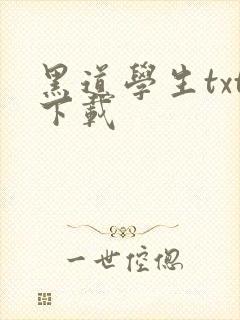 黑道學生txt
下載
一世倥偬